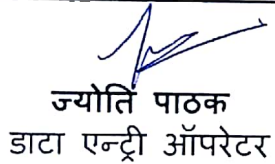 ज्योति पाठक
डाटा एन्ट्री ऑपरेटर